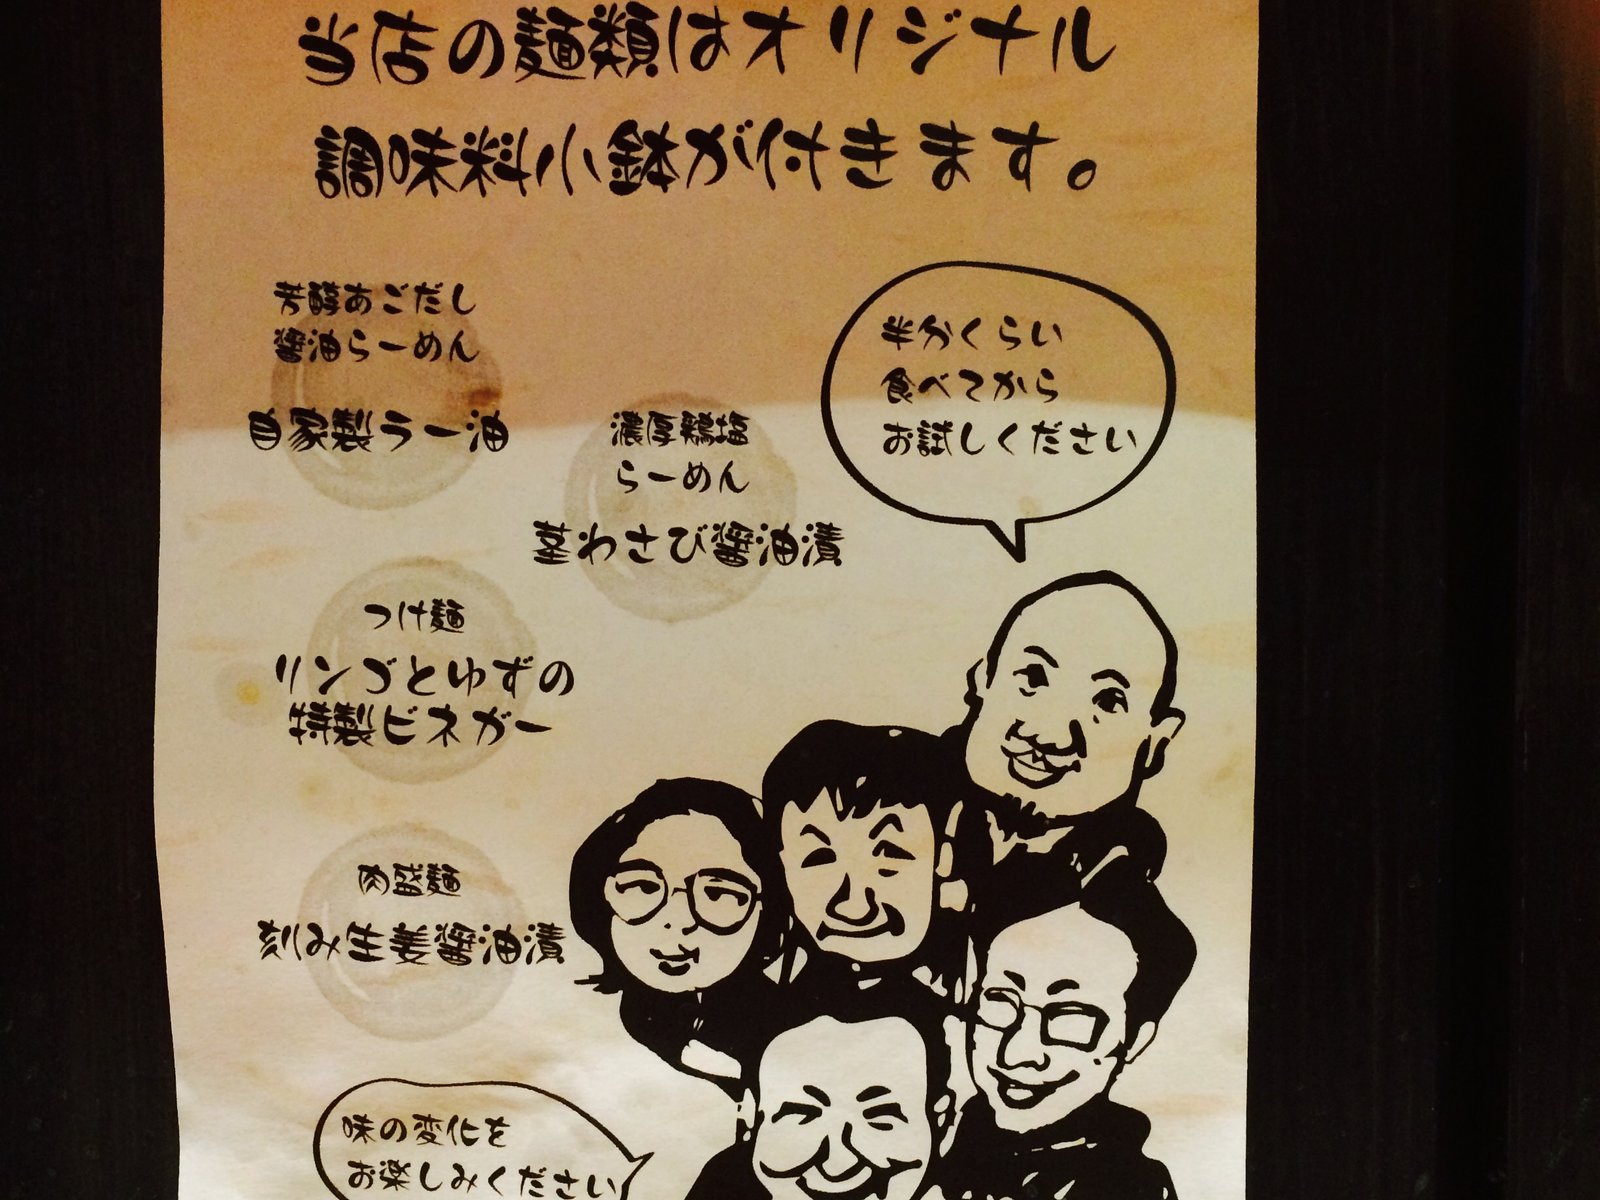 当店の麺類はオリジナル
調味料小鉢が付きます。
芳醇あごだし
醤油らーめん
自家製ラー油
濃厚鶏塩
らーめん
茎わさび醤油漬
半分くらい
食べてから
お試しください
つけ麺
リンゴとゆずの
特製ビネガー
肉盛麺
刻み生姜醤油漬
味の変化を
お楽しみください